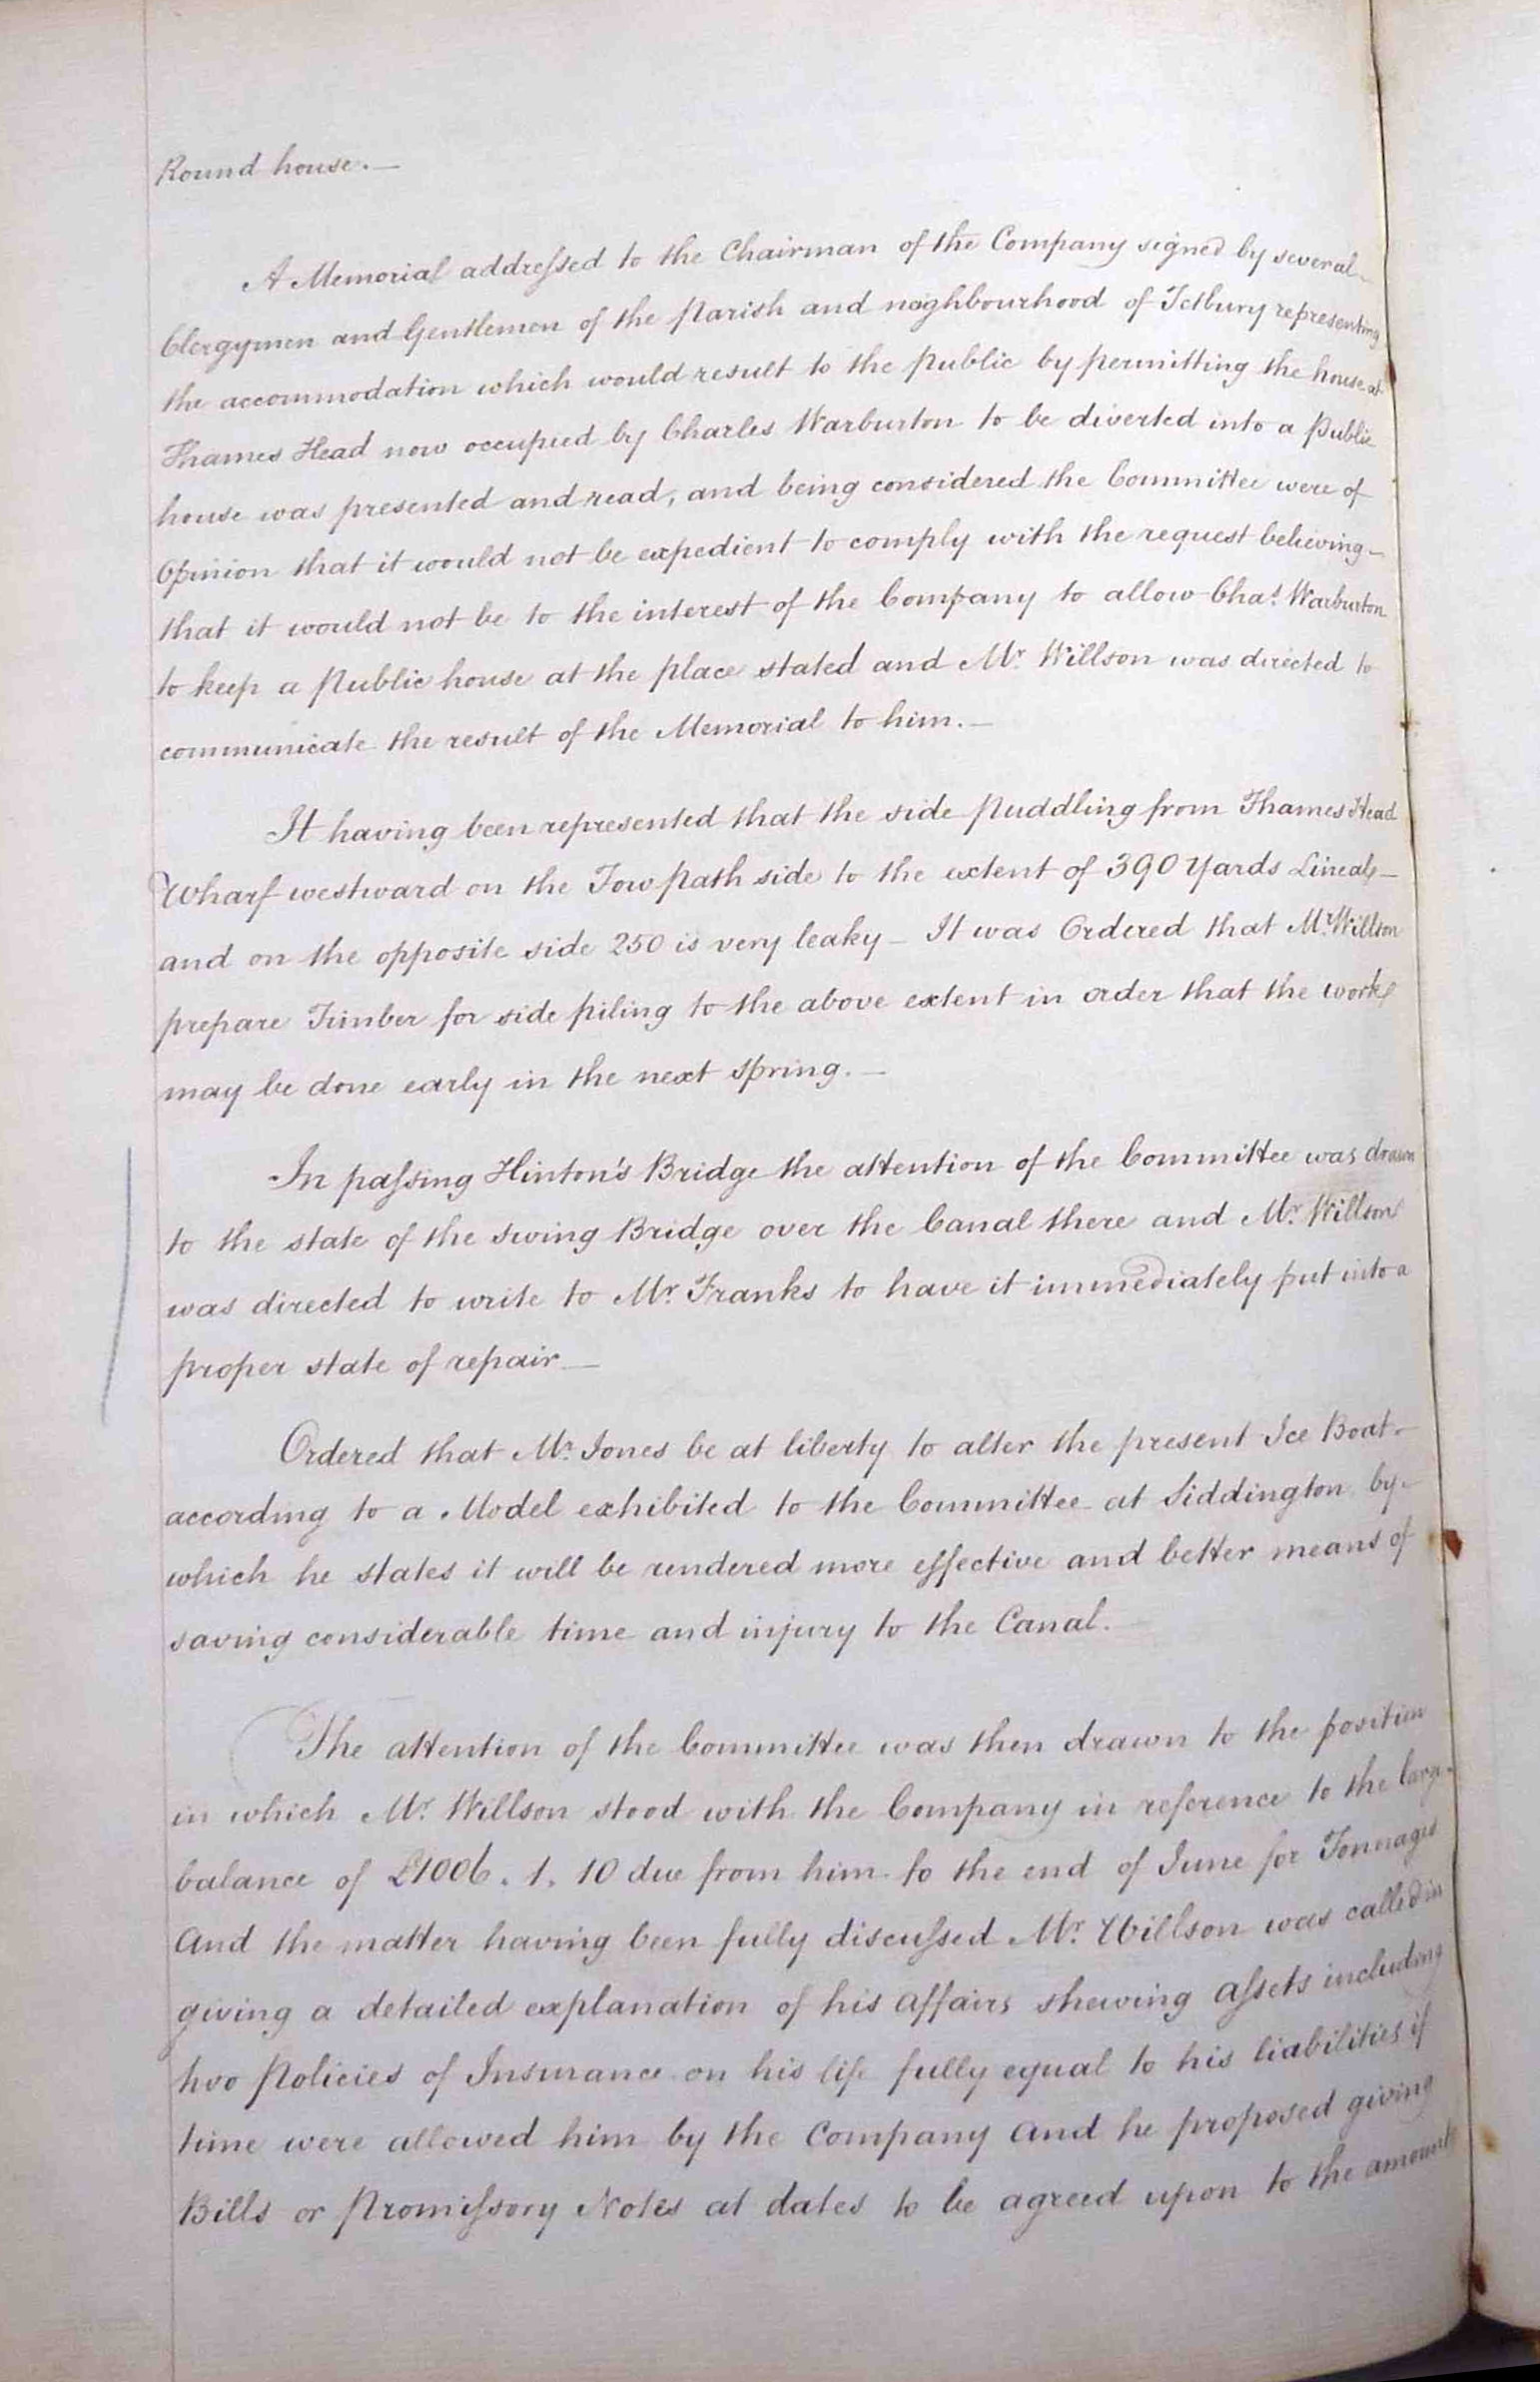 Round house. —
A Memorial addressed to the Chairman of the Company signed by several
Clergymen and Gentlemen of the Parish and neighbourhood of Tetbury representing
the accommodation which would result to the public by permitting the house at
Thames Head now occupied by Charles Warburton to be diverted into a Public
house was presented and read, and being considered the Committee were of
Opinion that it would not be expedient to comply with the request believing —
that it would not be to the interest of the Company to allow Chas. Warburton
to keep a Public house at the place stated and Mr. Willson was directed to
communicate the result of the Memorial to him. —
It having been represented that the side Puddling from Thames Head
Wharf westward on the Tow path side to the extent of 390 Yards Lineal —
and on the opposite side 250 is very leaky — It was Ordered that Mr. Willson
prepare Timber for side piling to the above extent in order that the work
may be done early in the next Spring. —
In passing Hinton's Bridge the attention of the Committee was drawn
to the state of the swing Bridge over the Canal there and Mr. Willson
was directed to write to Mr. Franks to have it immediately put into a
proper state of repair —
Ordered that Mr. Jones be at liberty to alter the present Ice Boat
according to a Model exhibited to the Committee at Siddington by
which he states it will be rendered more effective and better means of
saving considerable time and injury to the Canal. —
The attention of the Committee was then drawn to the position
in which Mr. Willson stood with the Company in reference to the large
balance of £1006. 1. 10 due from him to the end of June for Tonnages
And the matter having been fully discussed Mr. Willson was called in
giving a detailed explanation of his affairs shewing assets including
two Policies of Insurance on his life fully equal to his liabilities if
time were allowed him by the Company And he proposed giving
Bills or Promissory Notes at dates to be agreed upon to the amount